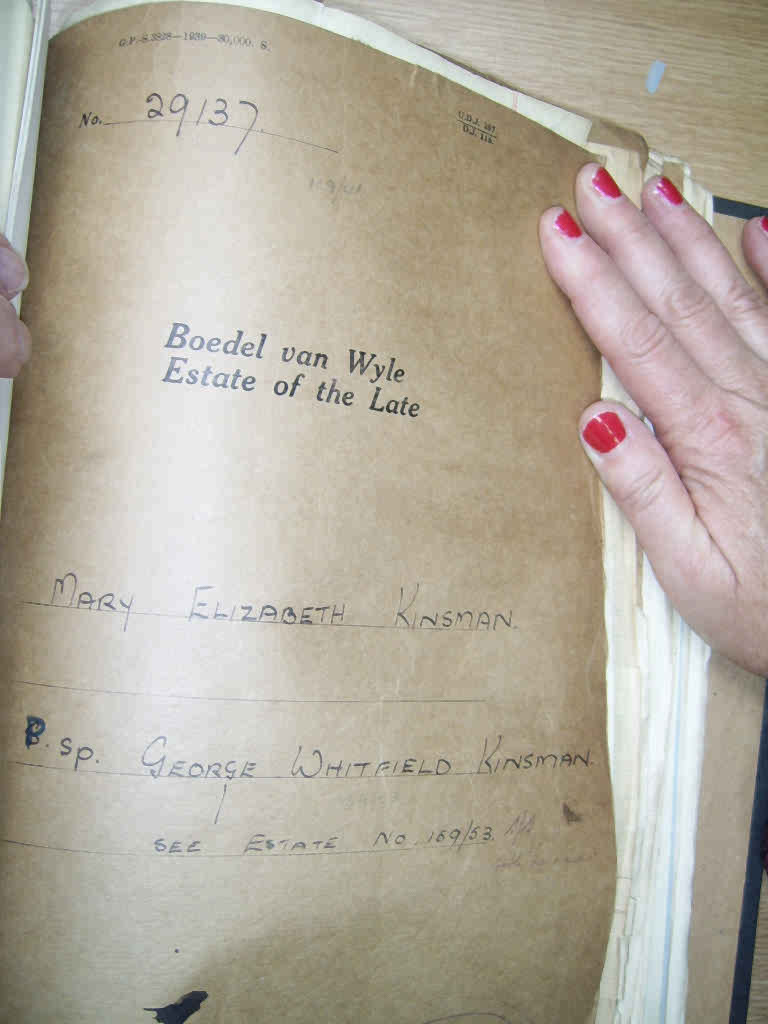 G.P.-S.3828—1939—30,000. S.
No. 29137.
U.D.J. 107
D.J. 118.
Boedel van Wyle
Estate of the Late
MARY ELIZABETH KINSMAN.
P. sp. GEORGE WHITFIELD KINSMAN.
SEE ESTATE NO. 159/53.